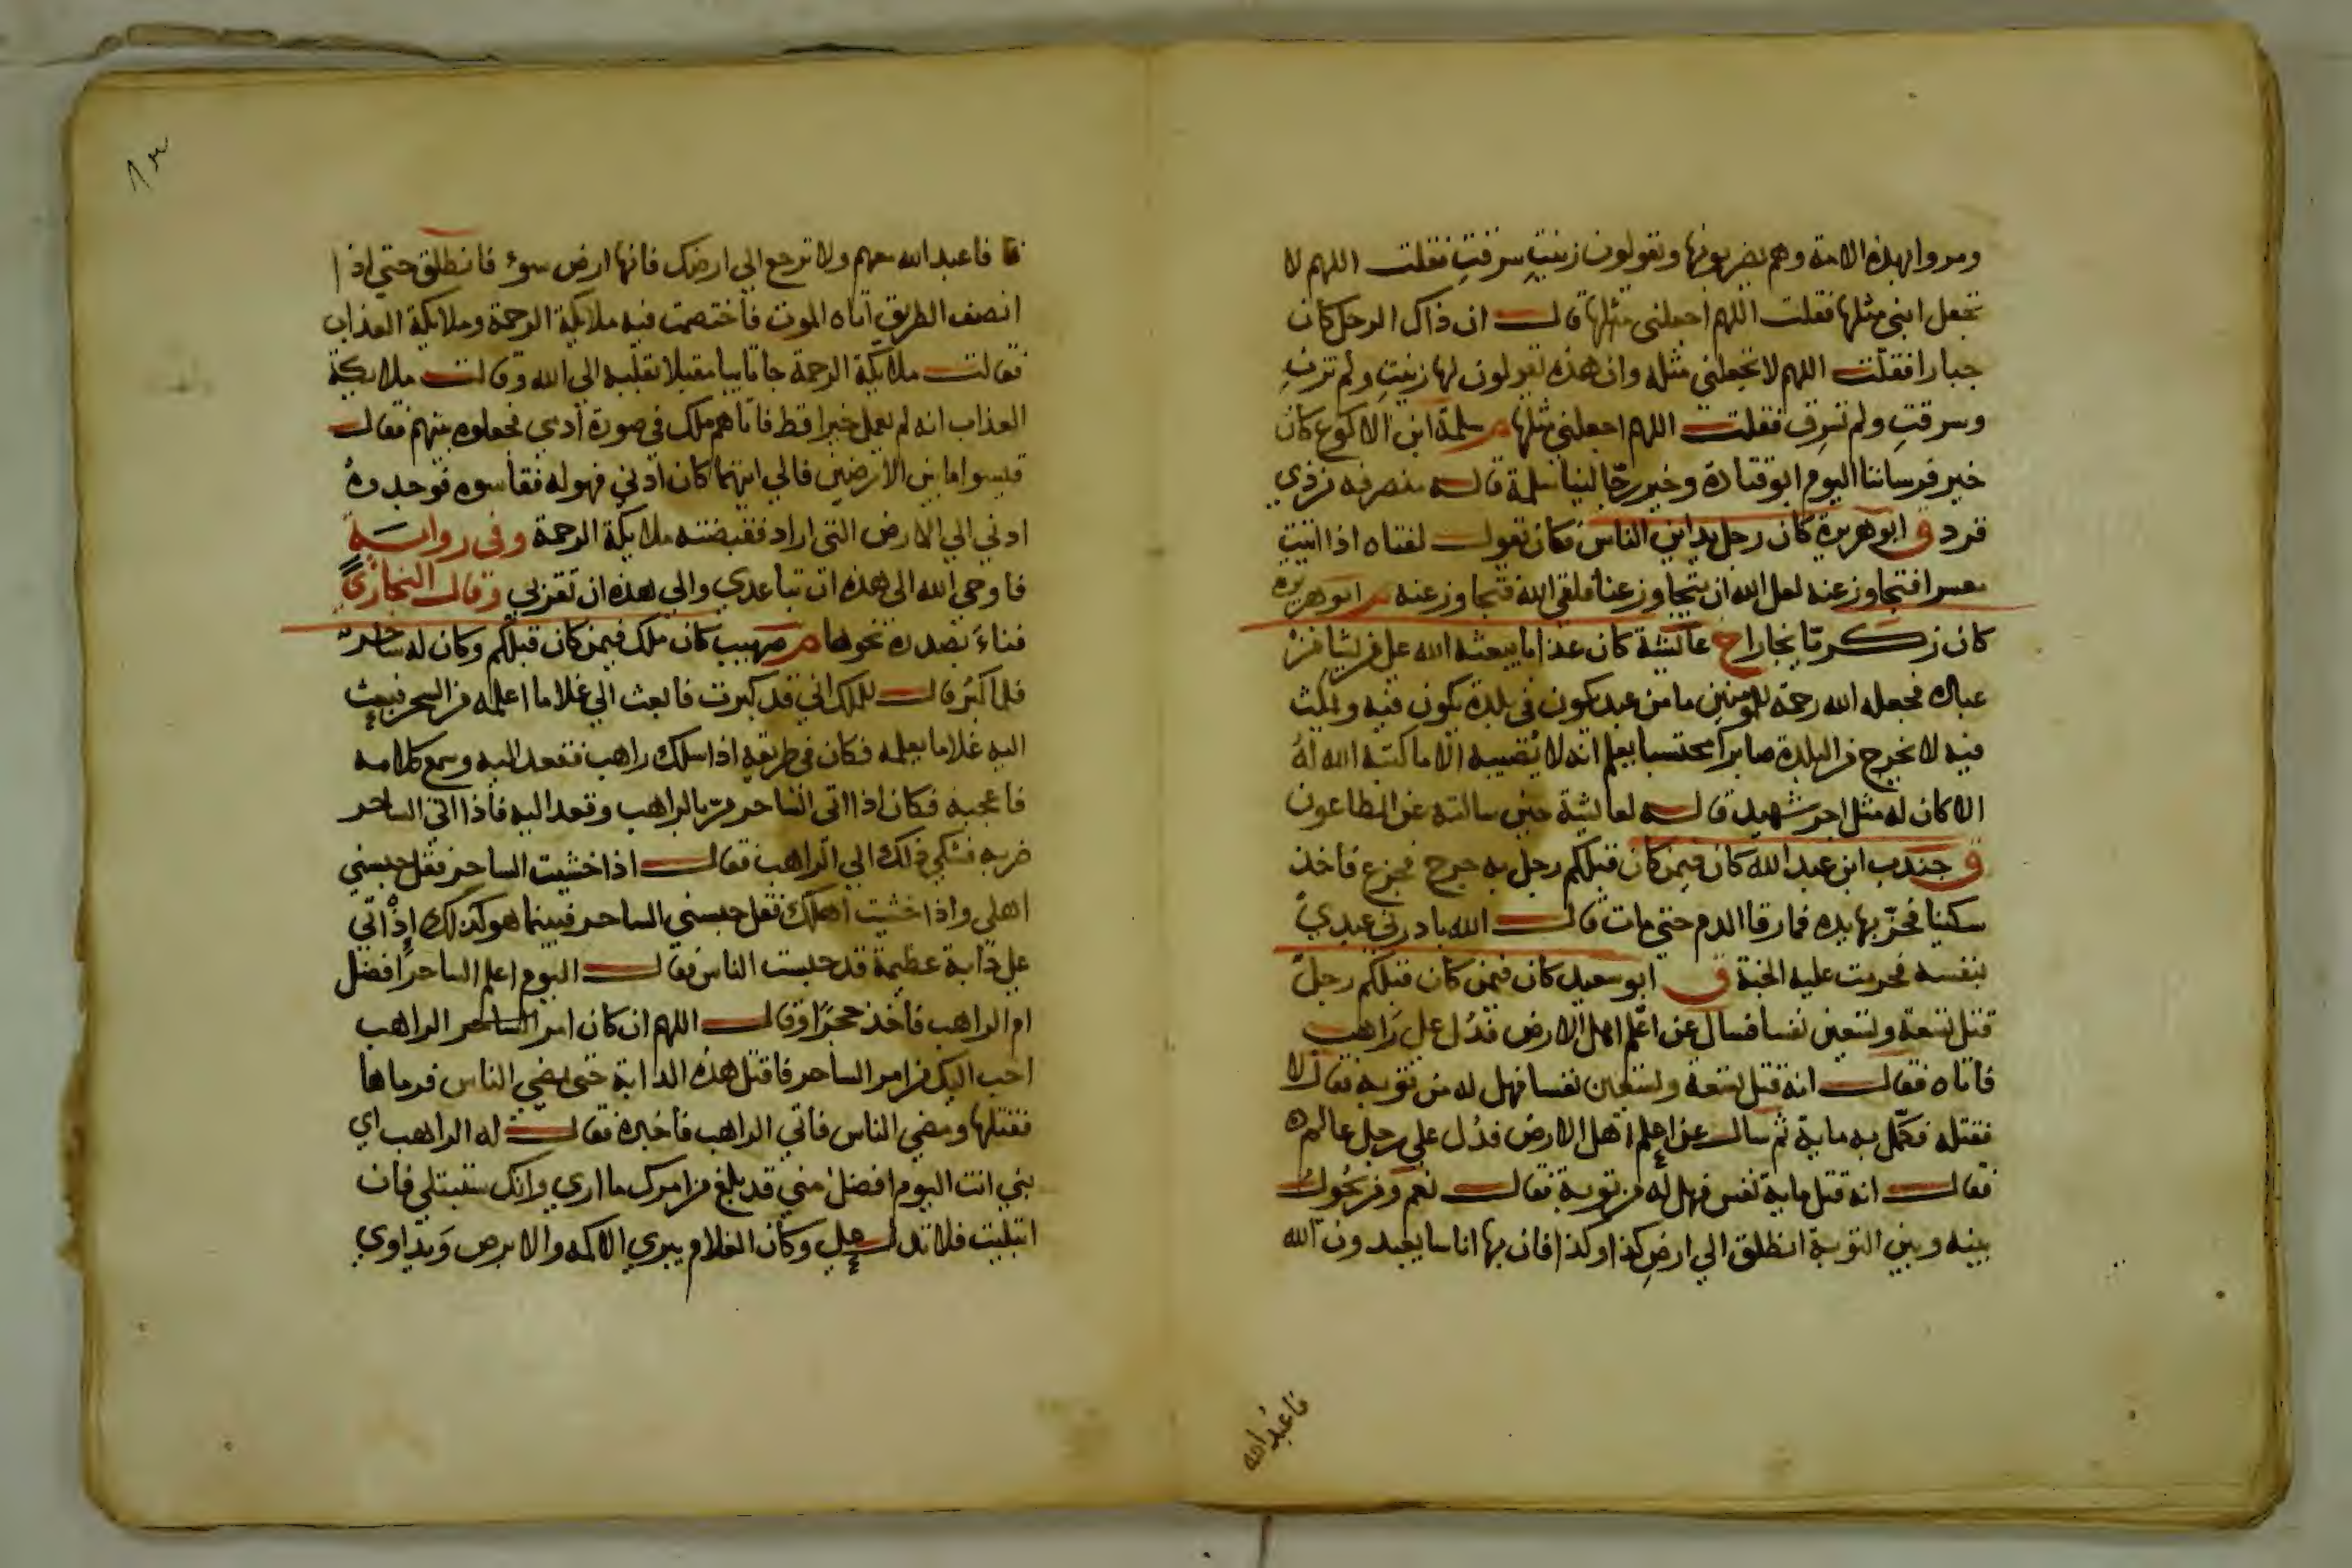 ومروا بهذه الامة وهم يضربونها ويقولون زنيتِ سرقتِ فقلت اللهم لا
تجعل ابنى مثلها فقلت اللهم اجعلنى مثلها قال ان ذاك الرجل كان
جبارا فقلت اللهم لا تجعلنى مثله وان هذه يقولون لها زنيتِ ولم تزنِ
وسرقتِ ولم تسرق فقلت اللهم اجعلنى مثلها م سلمة ابن الاكوع كان
خير فرساننا اليوم ابو قتادة وخير رجالنا سلمة قاله منصرفه من ذي
قرد ق ابو هريرة كان رجل يداين الناس فكان يقول لفتاه اذا اتيت
معسرا فتجاوز عنه لعل الله ان يتجاوز عنا فلقي الله فتجاوز عنه م ابو هريرة
كان زكريّا نجارا خ عائشة كان عذابا يبعثه الله على من يشا من
عباده فجعله الله رحمة للمومنين ما من عبد يكون فى بلدة يكون فيه ويمكث
فيه لا يخرج من البلدة صابرا محتسبا يعلم انه لا يُصيبه الا ما كتبه الله لهُ
الا كان له مثل اجر شهيد قاله لعائشة حين سالته عن الطاعون
ق جندب ابن عبد الله كان فيمن كان قبلكم رجل به جرح فجزع فاخذ
سكينا فحزّ بها يده فما رقا الدم حتى مات قال الله بادرنى عبدي
بنفسه فحرمت عليه الجنة ق ابو سعيد كان فيمن كان قبلكم رجلٌ
قتل تسعة وتسعين نفسا فسال عن اعلم اهل الارض فدُل على راهب
فاتاه فقال انه قتل تسعة وتسعين نفسا فهل له من توبة فقال لا
فقتله فكمّل به ماية ثم سال عن اعلم اهل الارض فدُل على رجل عالم
فقال انه قتل ماية نفس فهل له من توبة فقال نعم ومن يحُول
بينه وبين التوبة انطلق الي ارض كذا وكذا فان بها اناسا يعبدون الله
فاعبد الله
فاعبد الله معهم ولا ترجع الي ارضك فانها ارض سوء فانطلق حتي اذا
انصف الطريق اتاه الموت فاختصمت فيه ملايكة الرحمة وملايكة العذاب
فقالت ملايكة الرحمة جا تايبا مقبلا بقلبه الي الله وقالت ملايكة
العذاب انه لم يعمل خيرا قط فاتاهم ملك في صورة ادمي فجعلوه بينهم فقال
قيسوا ما بين الارضين فالي ايتهما كان ادني فهو له فقاسوه فوجدوهُ
ادني الي الارض التى اراد فقبضته ملايكة الرحمة وفي رواية
فاوحي الله الى هذه ان تباعدي والي هذه ان تقربي وقال البخاري
فناءَ بصدره نحوها م صهيب كان ملك فيمن كان قبلكم وكان له ساحر
فلما كبر قال للملك اني قد كبرت فابعث الي غلاما اعلمه من السحر فبعث
اليه غلاما يعلمه فكان في طريقه اذا سلك راهب فقعد اليه وسمع كلامه
فاعجبه فكان اذا اتى الساحر مرّ بالراهب وقعد اليه فاذا اتي الساحر
ضربه فشكي ذلك الي الراهب فقال اذا خشيت الساحر فقل حبسني
اهلى واذا خشيت اهلك فقل حبسني الساحر فبينما هو كذلك اِذْ اتي
على دابة عظيمة قد حبست الناس فقال اليوم اعلم الساحر افضل
ام الراهب فاخذ حجرًا وقال اللهم ان كان امر الساحر الراهب
احب اليك من امر الساحر فاقتل هذه الدابة حتى يمضي الناس فرماها
فقتلها ومضي الناس فاتي الراهب فاخبره فقال له الراهب اي
بني انت اليوم افضل مني قد بلغ من امرك ما اري وانك ستبتلي فان
ابتليت فلا تدل علي وكان الغلام يبري الاكمه والابرص ويداوي